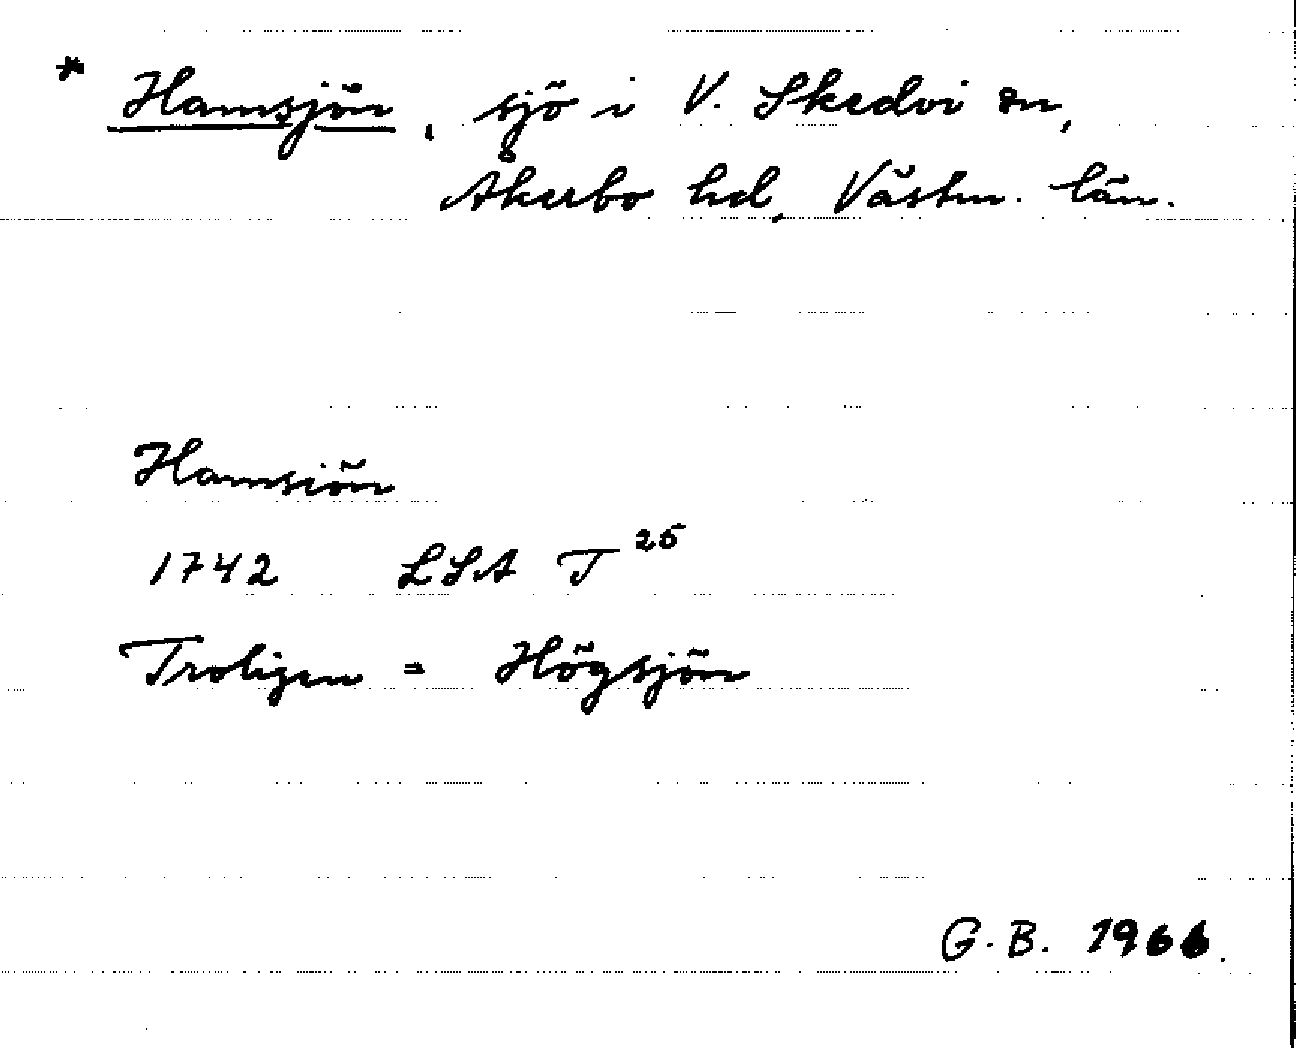 * Hamsjön, sjö i V. Skedvi sn,
Åkerbo hd, Västm. län.
Hamsiön
1742 LSA T 25
Troligen = Högsjön
G. B. 1966.